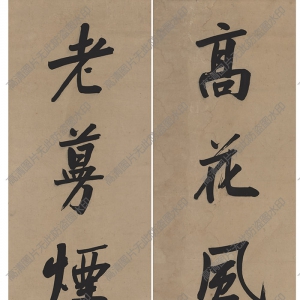 高花風
老蔓煙